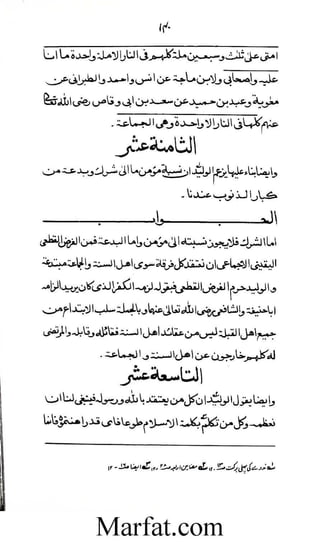 ۱۴۰
امتی علی ثلث و سبعین ملة کلهم فی النار الا ملة واحدة ما انا
علیه و اصحابی ولابن ماجة عن انس و احمد و الطبرانی عن
معویة و عبد بن حمید عن سعد بن ابی وقاص رضی الله تعالی
عنهم کلها فی النار الا واحدة وهی الجماعة۔
الثامنة عشر
وایضا بناء علیها یزعم الولید ان نسبة مؤمن ما الی شرك و بدعة من
کبار الذنوب عندنا۔
الجواب
اما الشرك فلا یجوز نسبته الی مؤمن واما البدعة فمن الفرض القطعی
الیقینی الاجماعی ان نعتقد کل فرقة سوی اهل السنة والجماعة مبتدعة
والولید حرم الفرض القطعی فبقوله لزمه الکفر الذی کان یرید الزامه
اباحنیفة والشافعی رضی الله تعالی عنهما وبالجملة سلب الابتداع من
جمیع اهل القبلة لیس من عقائد اهل السنة فقائله وقابله والمرتضی
له کلهم خارجون عن اهل السنة و الجماعة۔
التاسعة عشر
وایضا یقول الولید ان کل من یعتقد بالله ورسوله فینبغی لنا ان
نعظمه وکل من تکلم بکلمة الاسلام طوعا فای قدر اهنتموه فانا
Marfat.com